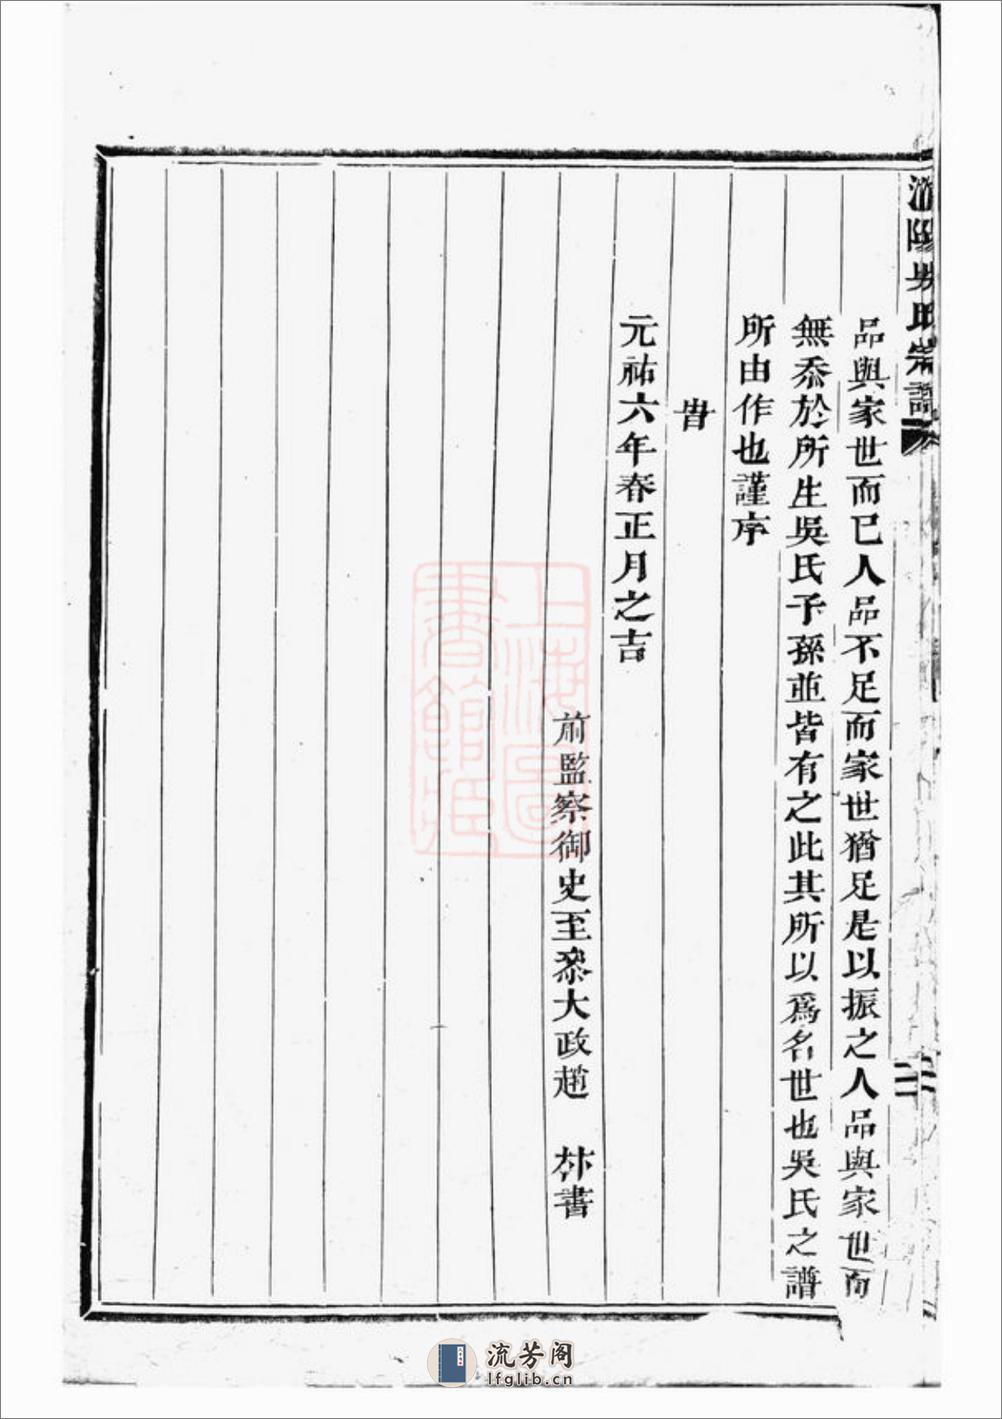 品與家世而已人品不足而家世猶足是以振之人品與家世而
無忝於所生吳氏子孫並皆有之此其所以爲名世也吳氏之譜
所由作也謹序
旹
元祐六年春正月之吉
前監察御史至叅大政趙 抃書
陽吳氏宗譜
二
上海圖
書館藏
流芳阁
lfglib.cn